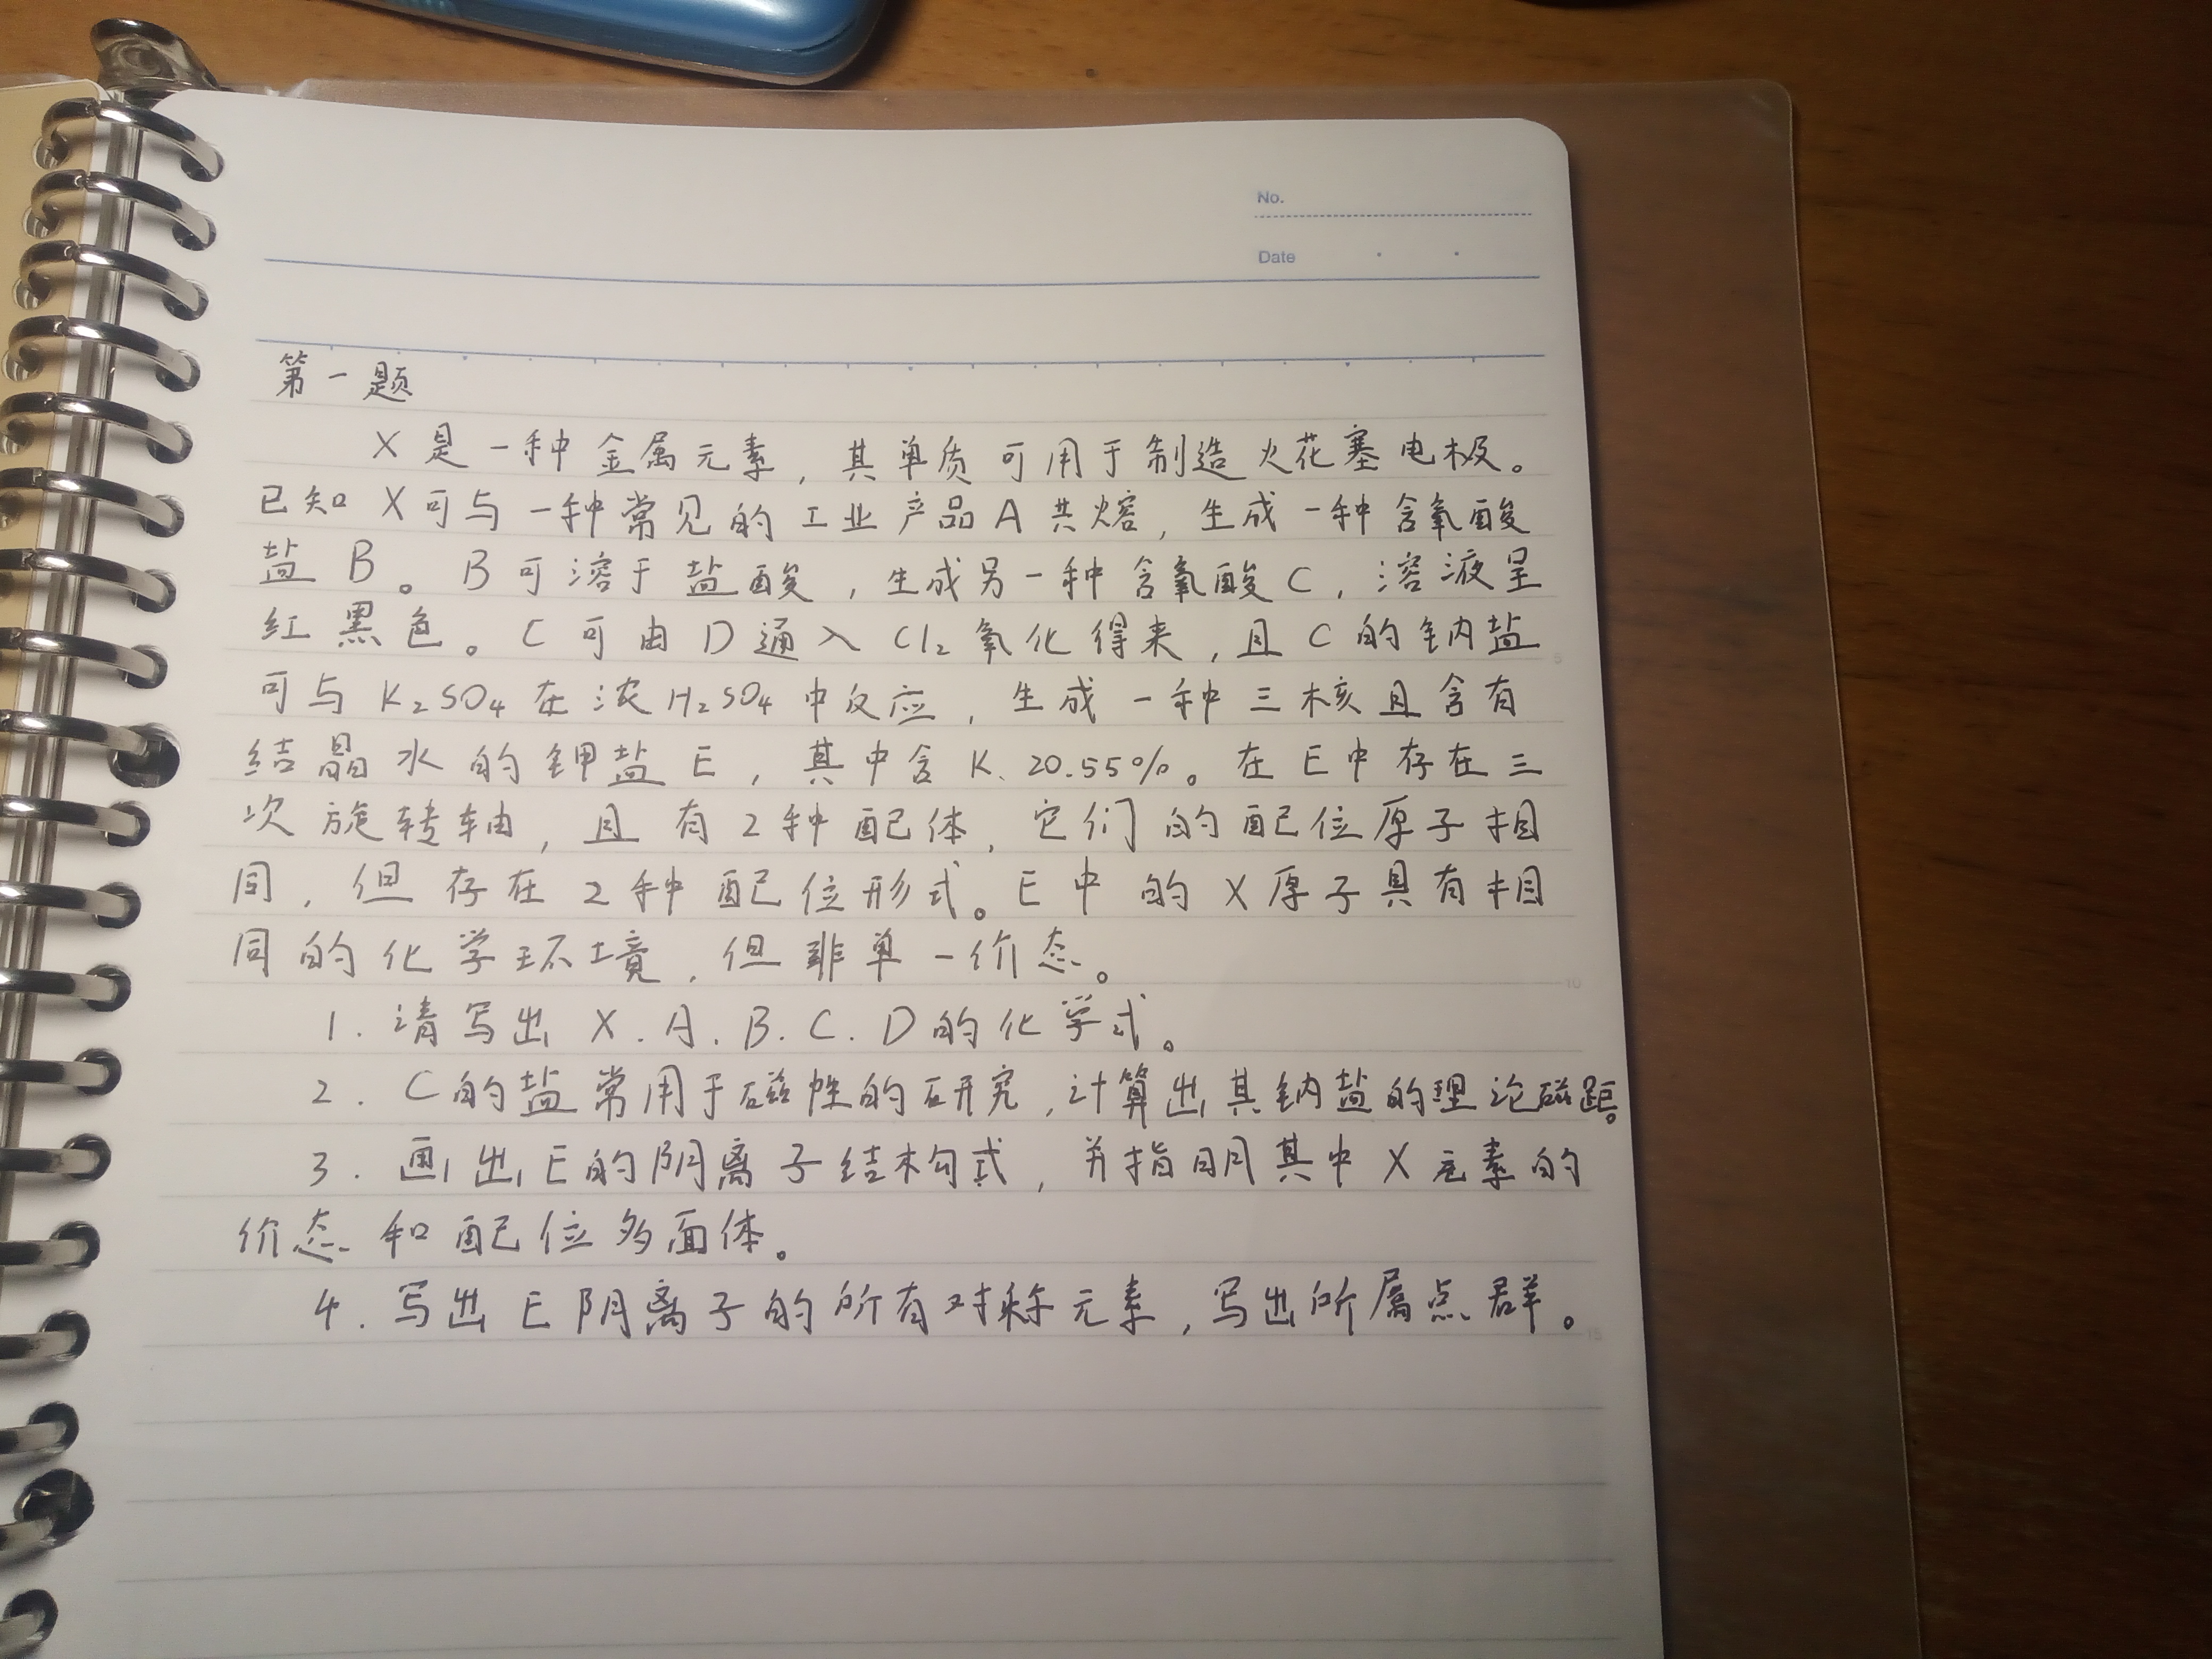 No.
Date
第一题
X是一种金属元素，其单质可用于制造火花塞电极。
已知X可与一种常见的工业产品A共熔，生成一种含氧酸
盐B。B可溶于盐酸，生成另一种含氧酸C，溶液呈
红黑色。C可由D通入Cl₂氧化得来，且C的钠盐
可与K₂SO₄在浓H₂SO₄中反应，生成一种三核且含有
结晶水的钾盐E，其中含K 20.55%。在E中存在三
次旋转轴，且有2种配体，它们的配位原子相
同，但存在2种配位形式。E中的X原子具有相
同的化学环境，但非单一价态。
1.请写出X.A.B.C.D的化学式。
2.C的盐常用于磁性的研究，计算出其钠盐的理论磁距。
3.画出E的阴离子结构式，并指明其中X元素的
价态和配位多面体。
4.写出E阴离子的所有对称元素，写出所属点群。
5
10
15